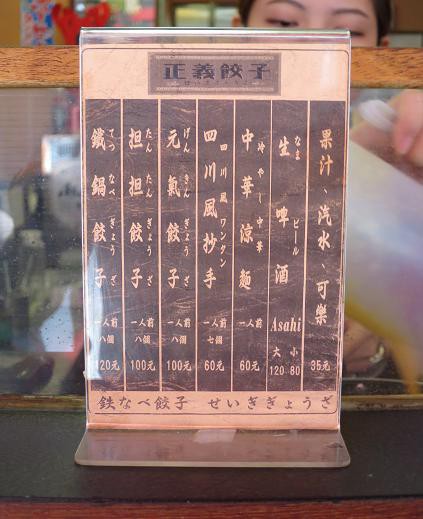 正義餃子
果汁、汽水、可樂 35元
生啤酒 Asahi 大120 小80
なま ビール
中華涼麵 一人前 60元
冷やし中華
四川風抄手 一人前 七個 60元
四川風ワンタン
元氣餃子 一人前 八個 100元
げんきぎょうざ
担担餃子 一人前 八個 100元
たんたんぎょうざ
鐵鍋餃子 一人前 八個 120元
てつなべぎょうざ
鉄なべ餃子 せいぎぎょうざ